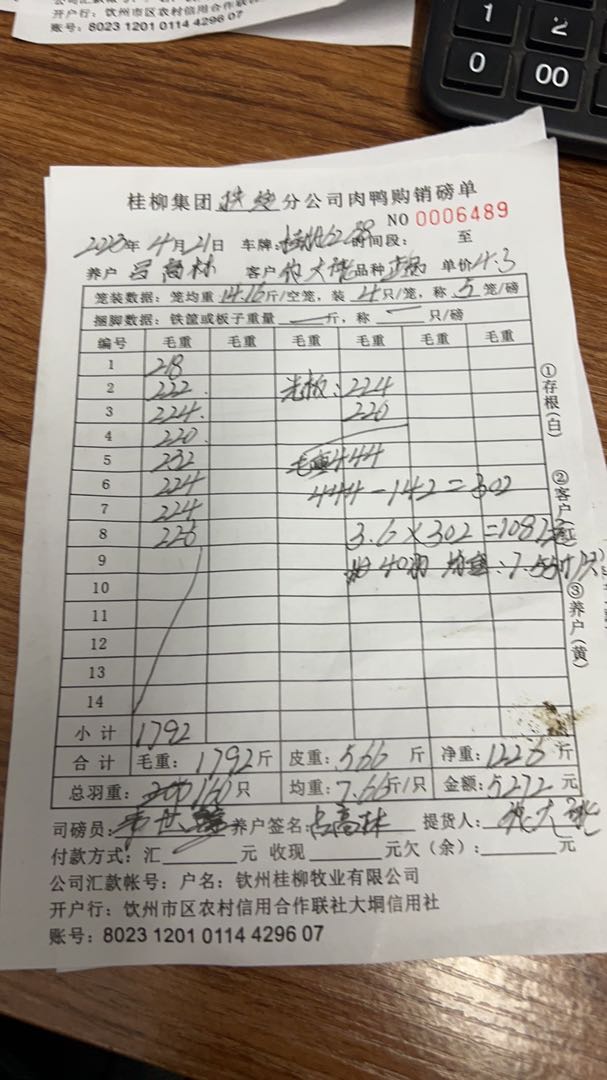 开户行：钦州市区农村信用合作联
账号：8023 1201 0114 4296 07
1 2
0 00
桂柳集团 分公司肉鸭购销磅单
NO 0006489
2023年4月21日 车牌： 时间段： 至
养户 吕高林 客户 品种 单价4.3
笼装数据：笼均重14.16斤/空笼，装4只/笼，称5笼/磅
捆脚数据：铁筐或板子重量 一 斤，称 一 只/磅
编号 毛重 毛重 毛重 毛重 毛重 毛重
1 218
2 222 光板：224
3 224 220
4 220
5 232 毛重444
6 224 444-142=302
7 224
8 228 3.6×302=1087
9 40 均重：7.55斤/只
10
11
12
13
14
小计 1792
合计 毛重：1792斤 皮重：566斤 净重：1226斤
总羽重：160只 均重：7.66斤/只 金额：5272元
司磅员： 养户签名：吕高林 提货人：
付款方式：汇 元 收现 元欠（余）： 元
公司汇款帐号：户名：钦州桂柳牧业有限公司
开户行：钦州市区农村信用合作联社大垌信用社
账号：8023 1201 0114 4296 07
①存根（白）
②客户（红
③养户（黄）